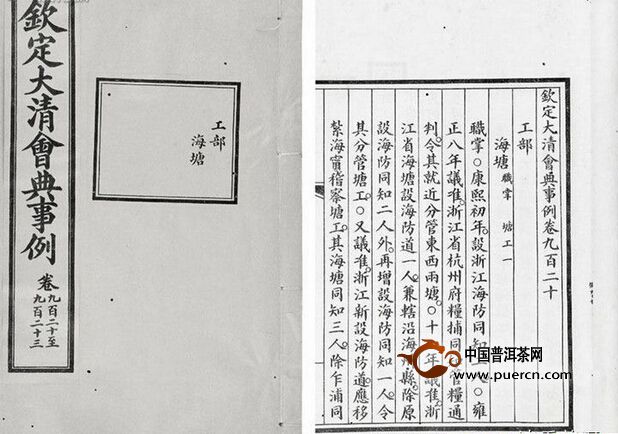 欽定大清會典事例
卷
九百二十至
九百二十三
工部
海塘
欽定大清會典事例卷九百二十
工部
海塘 職掌 塘工一
職掌○康熙初年設浙江海防同知人○雍
正八年議准浙江省杭州府糧捕同管糧通
判令其就近分管東西兩塘○十年議准浙
江省海塘設海防道一人兼轄沿海縣除原
設海防同知二人外再增設海防同知一人令
其分管塘工○又議准浙江新設海防道應移
紮海寧稽察塘工其海塘同知三人除乍浦同
中国普洱茶网
www.puercn.com